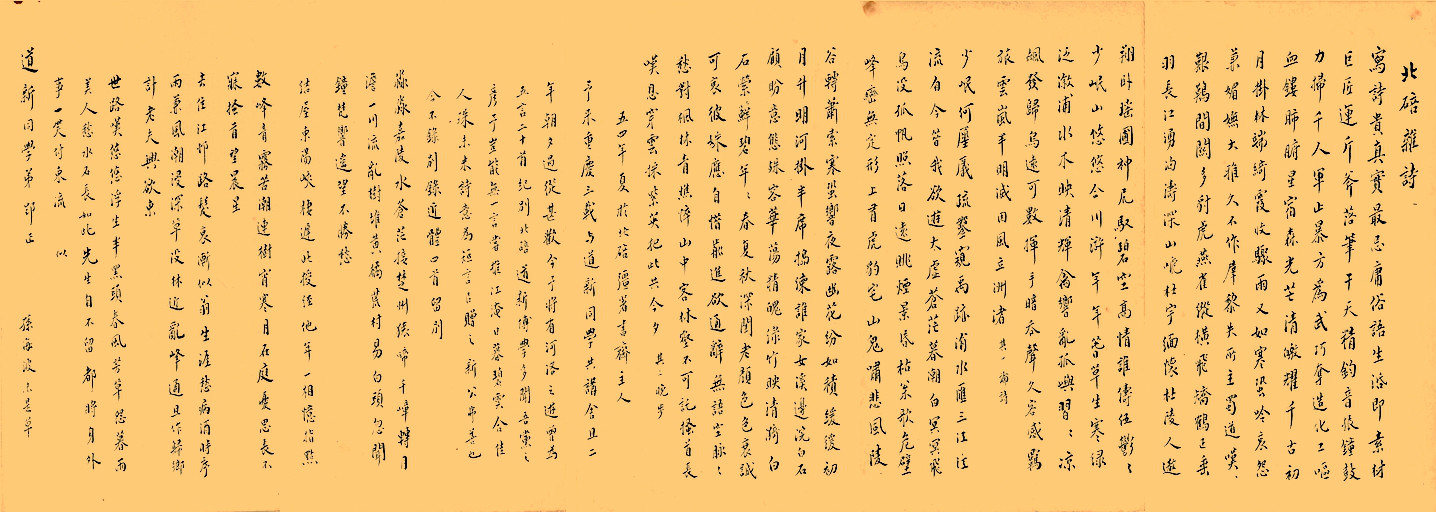 北碚雜詩
寫詩貴真實最忌庸俗語生添即素材
巨匠運斤斧落筆干天精鈞音振鐘鼓
力掃千人軍止暴方為武巧奪造化工嘔
血鏤肺腑星宿森光芒清皦耀千古初
月掛林端綺霞收驟雨又如寒蛩吟哀怨
兼媚嫵大雅久不作羣黎失所主蜀道嘆
艱鷄間關多豺虎燕雀縱橫飛矯鶴乏垂
羽長江湧洶濤深山咤杜宇緬懷杜陵人遨
翔臥瑤圃神尻馭碧空高情誰儔伍鬱々
少岷山悠悠合川滸年年蓍草生寒綠
泛漵浦水木映清輝禽響亂孤嶼習々涼
颷發歸鳥遠可數揮手暗吞聲久客感羈
旅雲嵐半明滅因風立洲渚 其一論詩
少岷何㕒㕒疏鑿窺禹跡涪水匯三江江
流自今昔我欲遊大虛蒼茫暮潮白冥冥飛
鳥沒孤帆照落日遠眺煙景昏枯策欹危壁
峰巒無定形上有虎豹宅山鬼嘯悲風陵
谷轉蕭索寒蛩響夜露幽花紛如積緩緩初
月升明河掛半席搗練誰家女溪邊浣白石
顧盼意態殊容華蕩精魄淥竹映清漪白
石縈鮮碧年々春夏秋深閨老顏色色衰誠
可哀彼姝應自惜羞進欲通辭無語空脈々
愁對佩林音憔悴山中客休咎不可託搔首長
嘆息穿雲採紫英犯此共今夕 其二晚步
五四年夏於北碚彊著書齋主人
予來重慶三載与道新同學共講舍且二
年朝夕過從甚歡今予將有河洛之遊曾為
五言二十首紀別北碚道新博學多聞吾黨之
彥予豈能無一言當雅江淹日暮碧雲合佳
人殊未來詩意為短言以贈之新公弗善也
今不錄別錄近體四首留別
淼淼嘉陵水蒼茫接楚州候帰千嶂轉月
湾一川流亂樹堆黃橘叢村易白頭忽聞
鐘梵響遠望不勝愁
結屋東陽峽棲遲此授經他年一相憶指點
數峰青霧苦潮連樹宵寒月在庭憂思長不
寐捨首望晨星
去住江邨路鬓衰漸似翁生涯愁病酒時序
雨兼風潮浸深草沒林近亂峰通且作歸鄉
計老夫興欲東
世路嘆悠悠浮生半黑頭春風芳草怨暮雨
美人愁水石長如此先生自不留都將身外
事一笑付東流 以
道新同學弟郢正 孫海波未是草